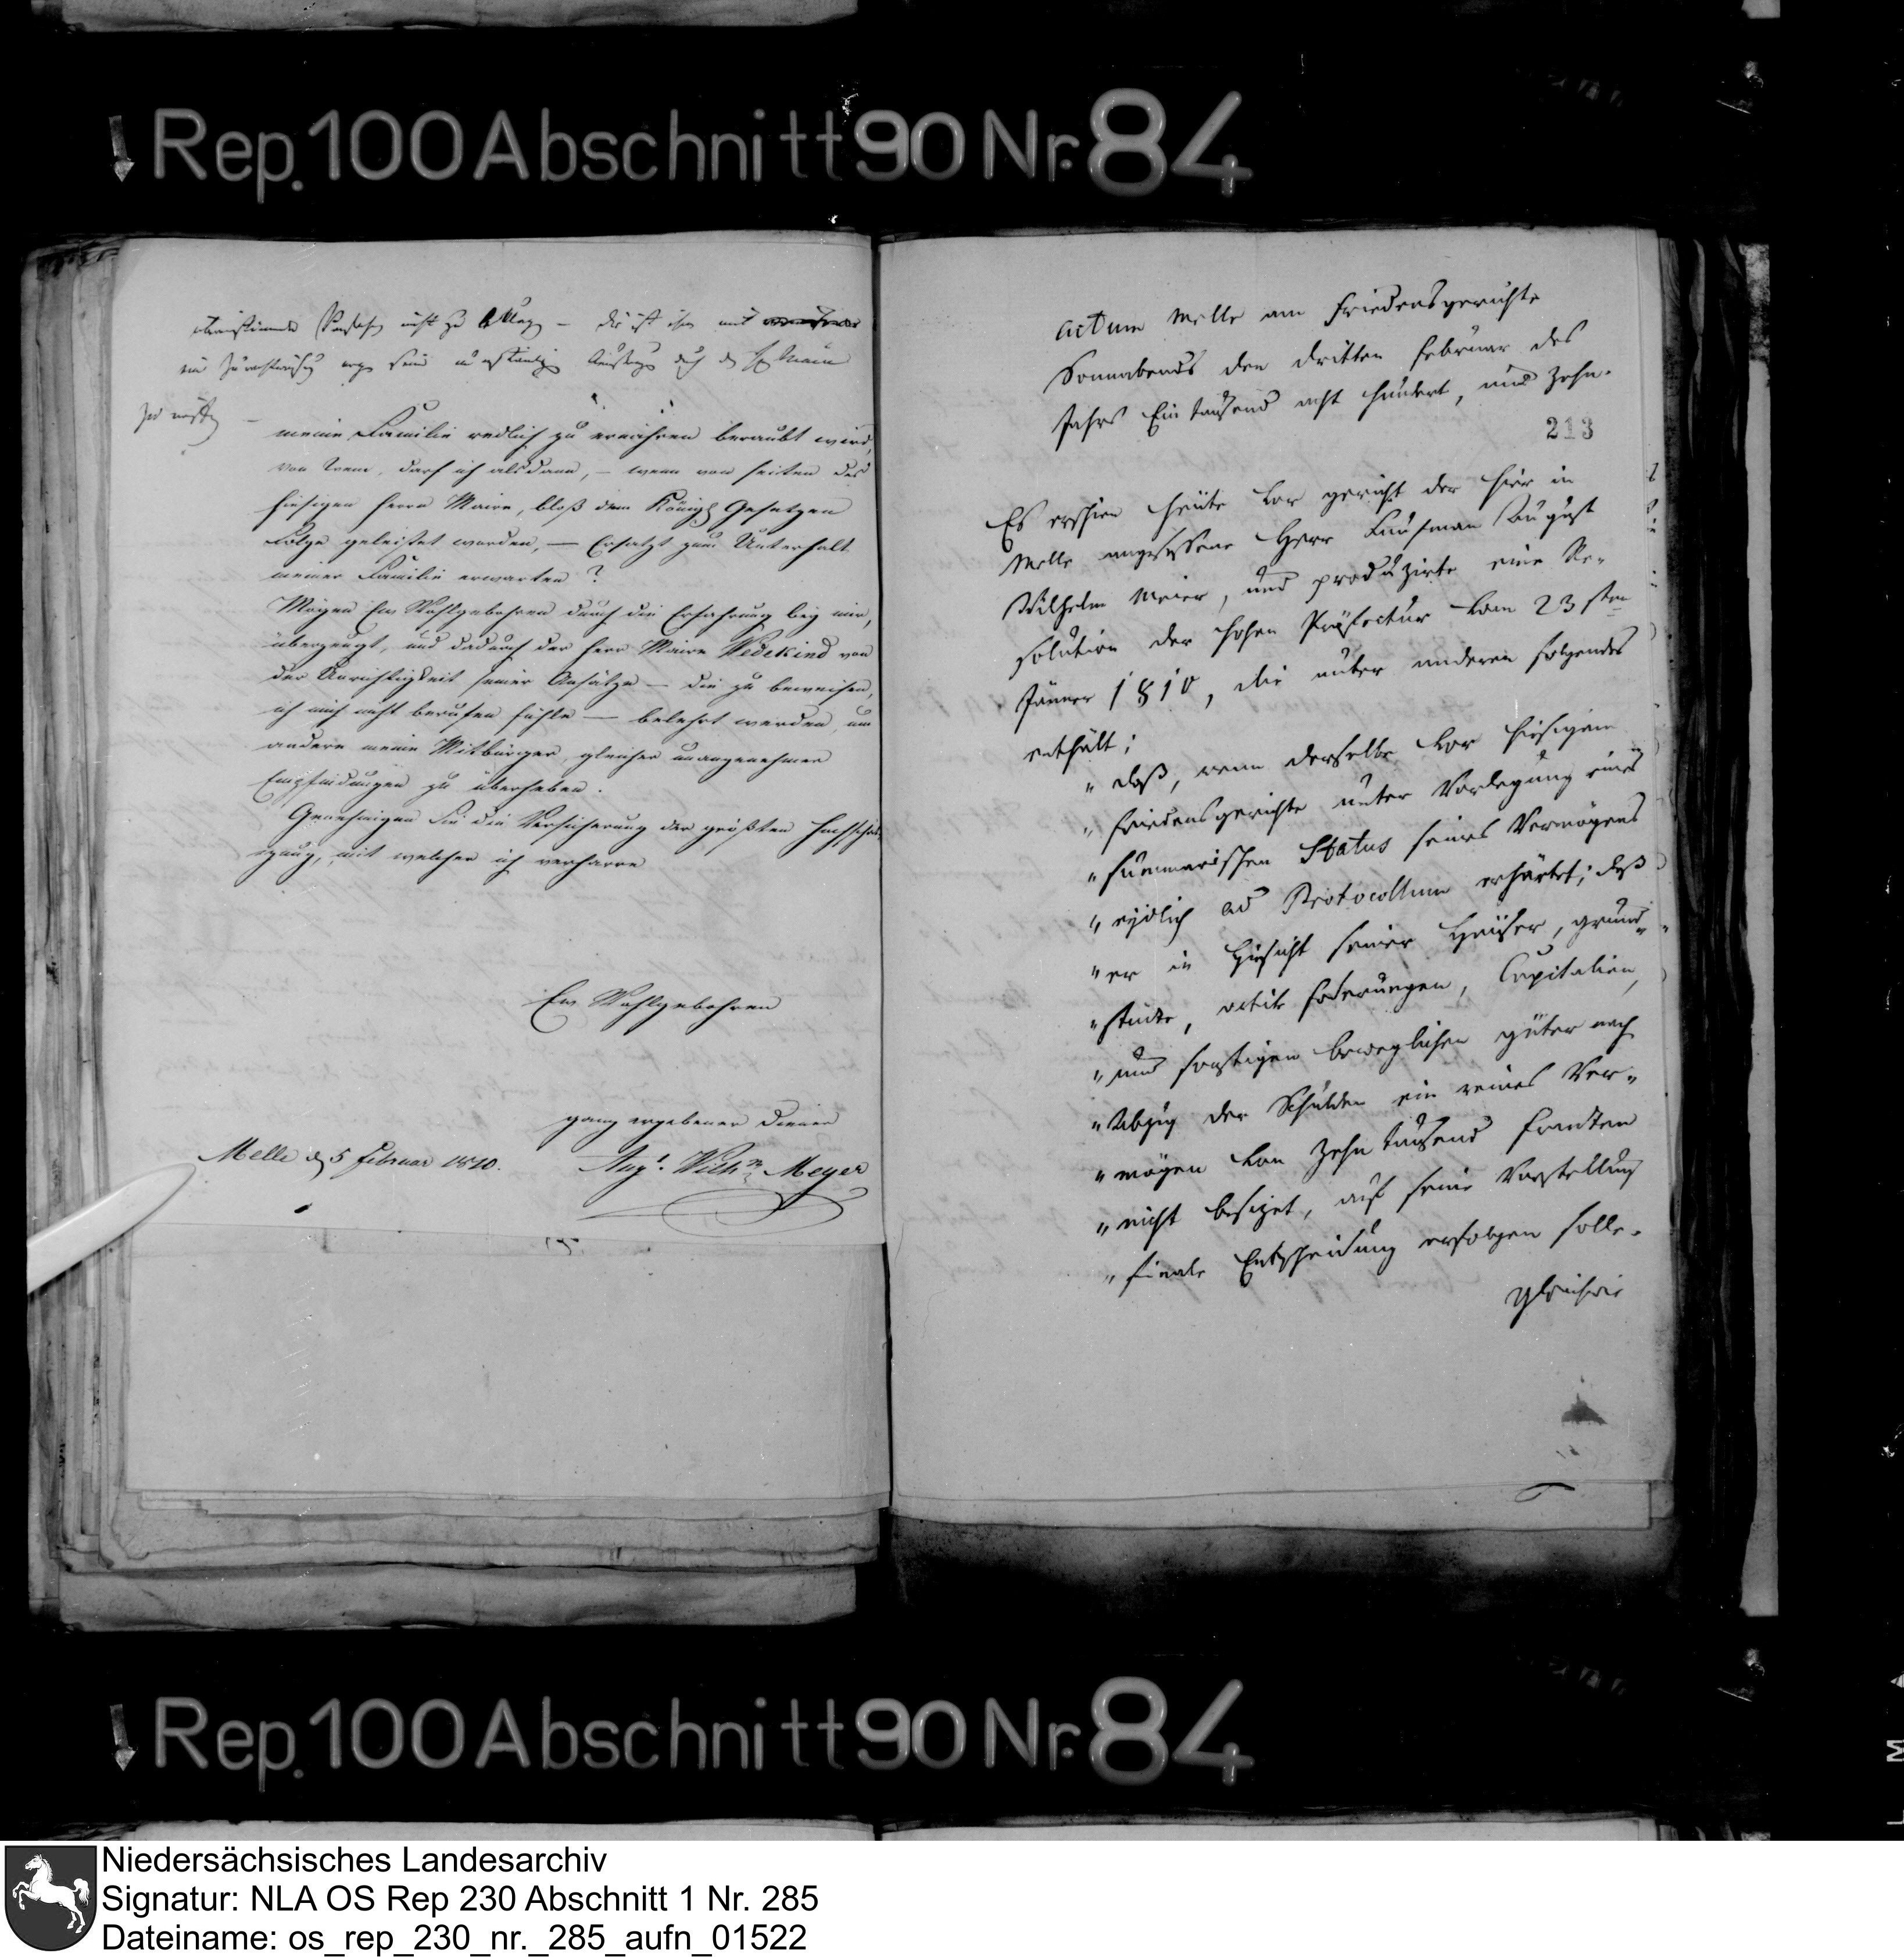 Rep. 100 Abschnitt 90 Nr. 84
nicht zu
meine Familie redlich zu ernähren beraubt wird,
von wem, darf ich alsdann, — wenn von seiten des
hiesigen Herrn Maire, bloß dem Königl Gesetzen
Folge geleistet worden, — Ersatz zum Unterhalt
meiner Familie erwarten?
Mögen Ew Wohlgebohren durch die Erfahrung bey mir,
überzeugt, und dadurch der Herr Maire Wedekind von
der Unrichtigkeit seiner Ansätze — die zu beweisen,
ich mich nicht berufen fühle — belehrt werden, um
andere meine Mitbürger, gleicher unangenehmer
Empfindungen zu überheben.
Genehmigen Sie die Versicherung der größten Hochschät-
zung, mit welcher ich verharre
Ew Wohlgebohren
ganz ergebener Diener
Melle d 5 Februar 1810.
Augt. Wilhm Meyer
Actum Melle am Friedensgerichte
Sonnabends den dritten Februar des
Jahrs Ein tausend acht hundert, und zehn.
213
Es erschien heute vor Gericht der hier in
Melle angesessene Herr Kaufman August
Wilhelm Meier, und produzirte eine Re-
solution der hohen Präfectur vom 23 sten
Jänner 1810, die unter anderen folgendes
enthält;
„ daß, wenn derselbe vor hiesigem
„ Friedensgerichte unter Vorlegung eines
„ summarischen Status seines Vermögens
„ eydlich ad Protocollum erhärtet; daß
„ er in Hinsicht seiner Häuser, Grund-
„ stücke, activ Foderungen, Capitalien,
„ und sonstigen beweglichen Güter nach
„ Abzug der Schulden ein reines Ver-
„ mögen von zehn tausend Franken
„ nicht besizet, auf seine Vorstellung
„ finale Entscheidung erfolgen solle.
Gleichwie
Rep. 100 Abschnitt 90 Nr. 84
Niedersächsisches Landesarchiv
Signatur: NLA OS Rep 230 Abschnitt 1 Nr. 285
Dateiname: os_rep_230_nr._285_aufn_01522